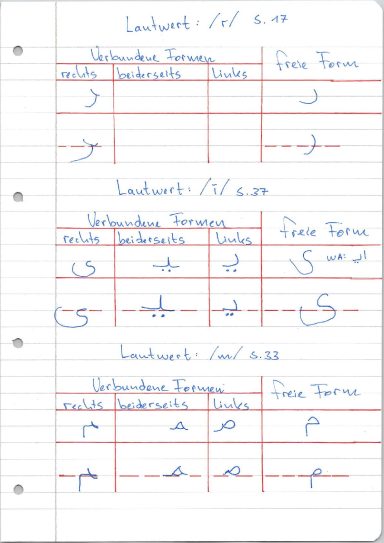 Lautwert: /r/ S. 17
Verbundene Formen
freie Form
rechts beiderseits Links
ر ر
ر ر
Lautwert: /ī/ S. 37
Verbundene Formen
freie Form
rechts beiderseits Links
ى ـيـ يـ ى WA:
ى ـيـ يـ ى
Lautwert: /m/ S. 33
Verbundene Formen
freie Form
rechts beiderseits Links
ـم ـمـ مـ م
ـم ـمـ مـ م